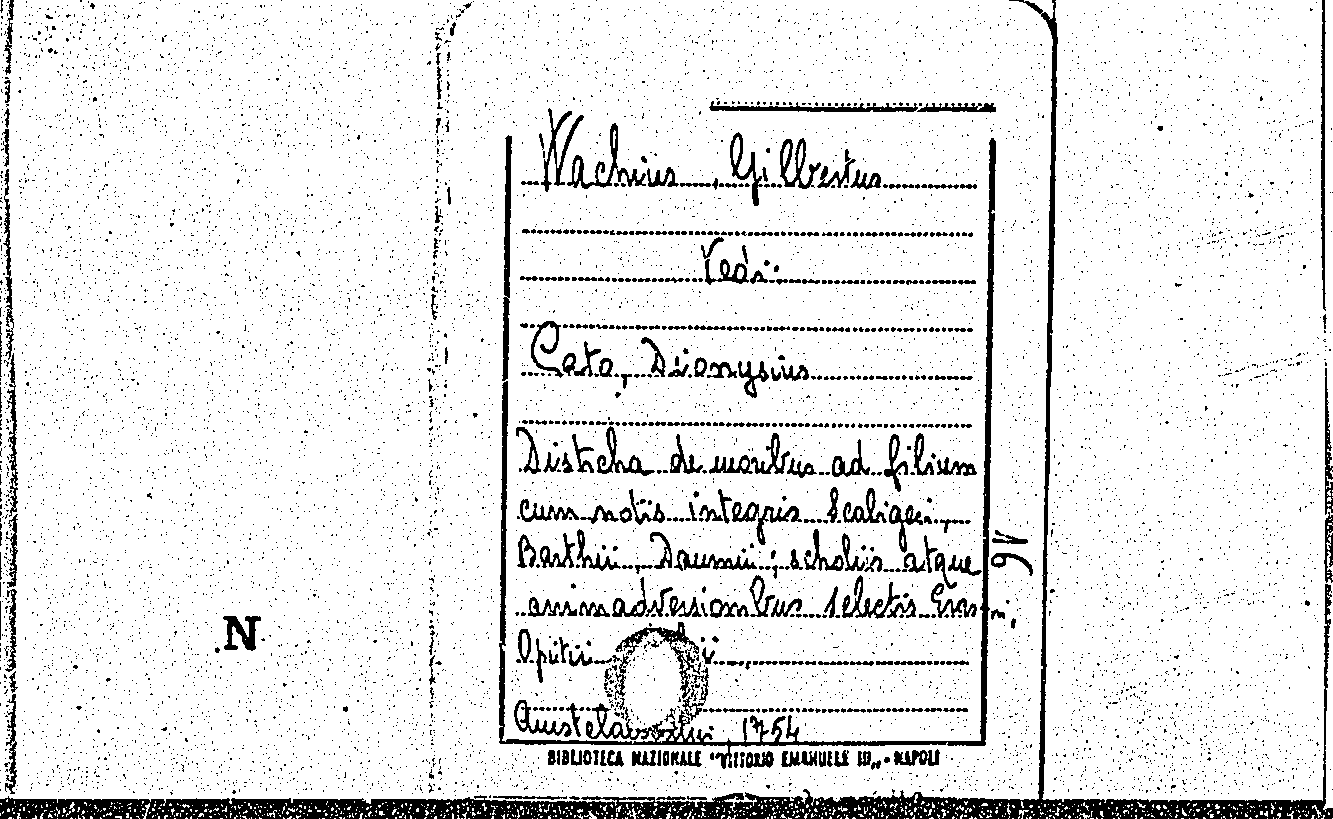 Wachius, Gilbertus
Vedi:
Cato, Dionysius
Disticha de moribus ad filium
cum notis integris Scaligeri,
Barthii, Daumii; scholiis atque
animadversionibus selectis Erasmi,
Opitii
Amstelaedami, 1754
BIBLIOTECA NAZIONALE "VITTORIO EMANUELE III„ - NAPOLI
N